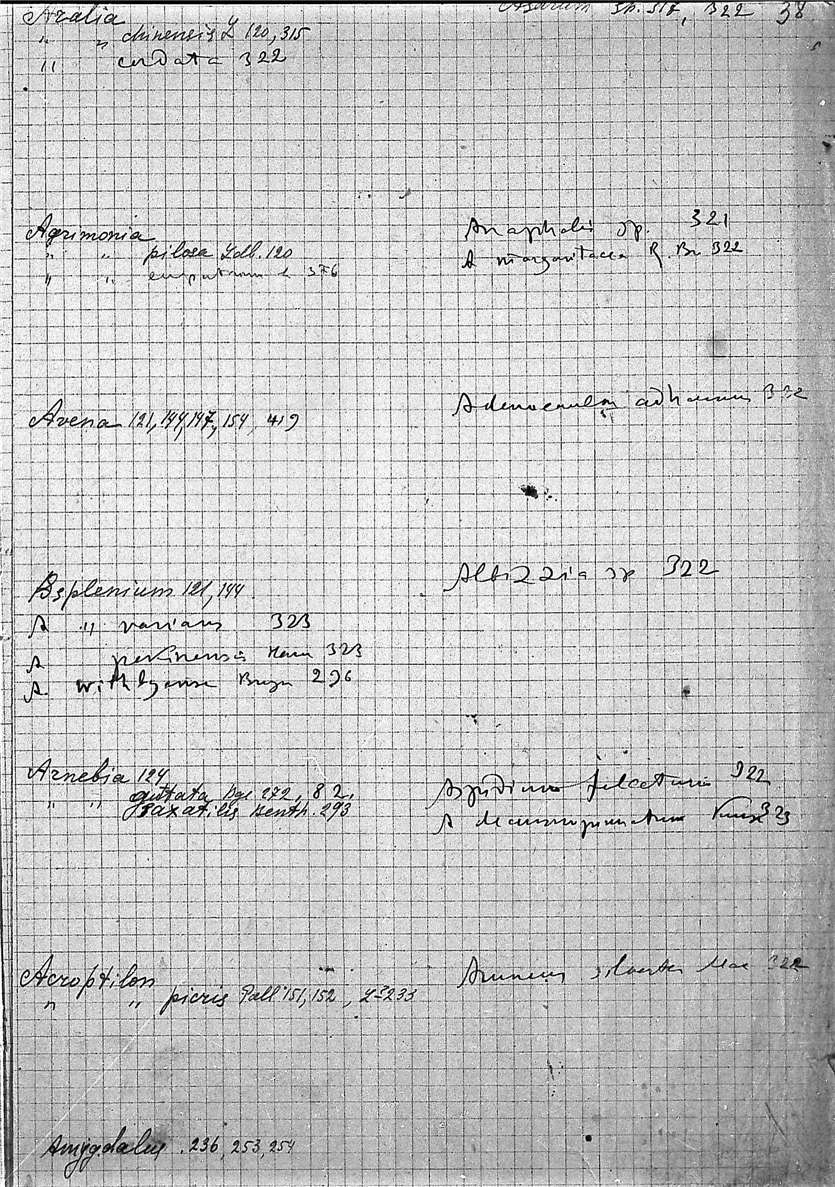 Aralia
" " chinensis L 120, 315
" cordata 322
Asarum sp. 317, 322 38
Agrimonia
" " pilosa Ldb. 120
" " 376
Avena 121, 144, 147, 154, 419
Asplenium 121, 144
A " varians 323
A pekinensis Hanc 323
A. 296
Arnebia 124
" " guttata Bge 272, 82,
saxatilis Benth. 293
Acroptilon
" " picris Pall 151, 152, 233
Amygdalus . 236, 253, 254
Anaphalis sp. 321
A margaritacea R. Br 322
Adenocaulon 322
Albizzia sp 322
Aspidium falcatum 322
A 323
Aruncus silvester 322